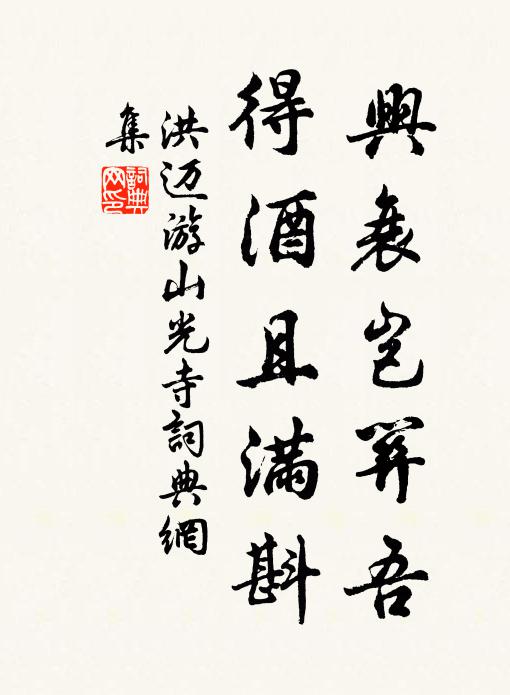 興衰豈關吾
得酒且滿斟
洪迈游山光寺詞典網
集
詞典
网印